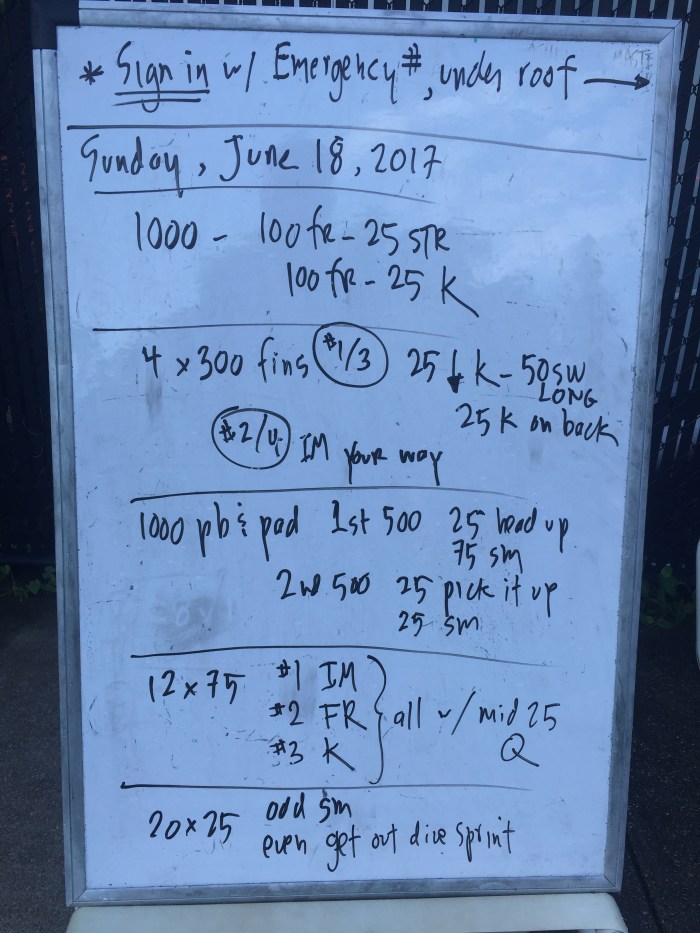 * Sign in w/ Emergency #, under roof →
Sunday, June 18, 2017
1000 - 100 fR - 25 STR
100 fR - 25 K
4 x 300 fins #1/3 25 ↓ K - 50 SW
LONG
25 K on back
#2/4 IM YOUR way
1000 pb & pad 1st 500 25 head up
75 sm
2nd 500 25 pick it up
25 sm
12 x 75 #1 IM
#2 FR } all w/ mid 25
#3 K Q
20 x 25 odd sm
even get out dive sprint